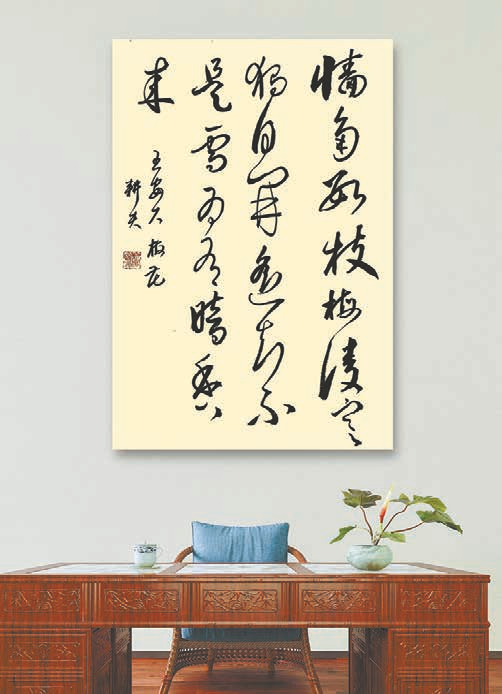 墙角数枝梅凌寒
独自开遥知不
是雪为有暗香
来
王安石 梅花
耕夫